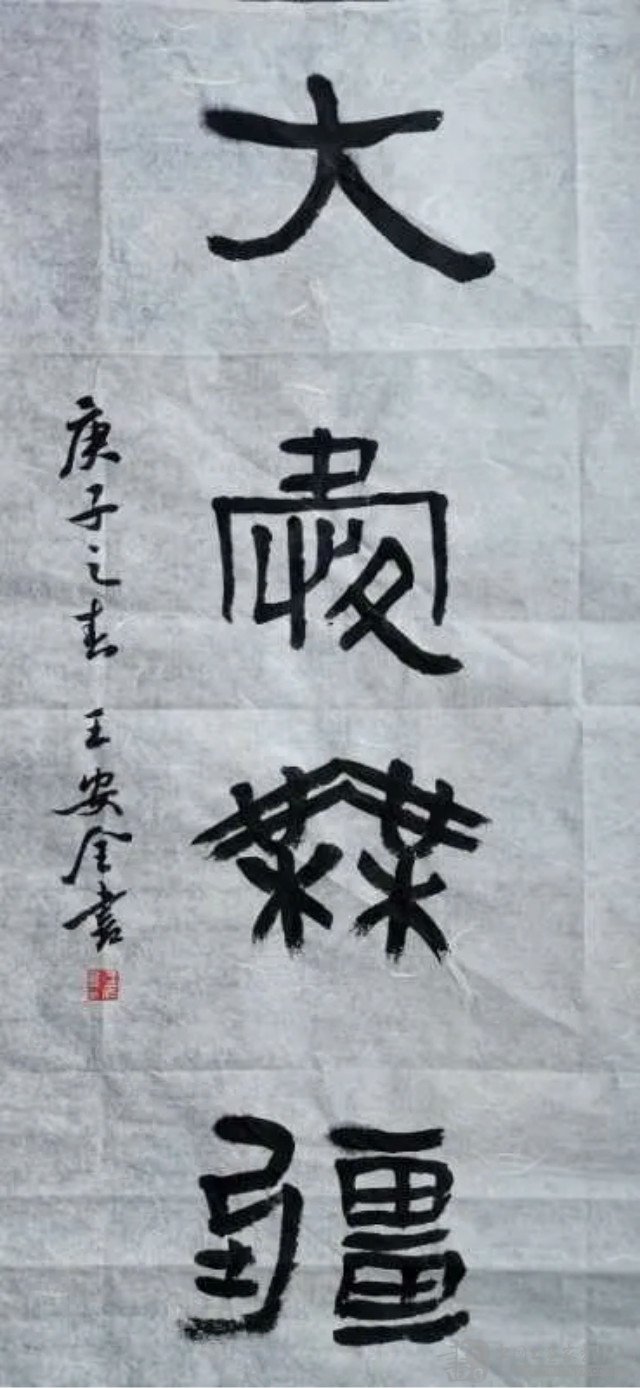 大爱无疆
庚子之春 王安全书